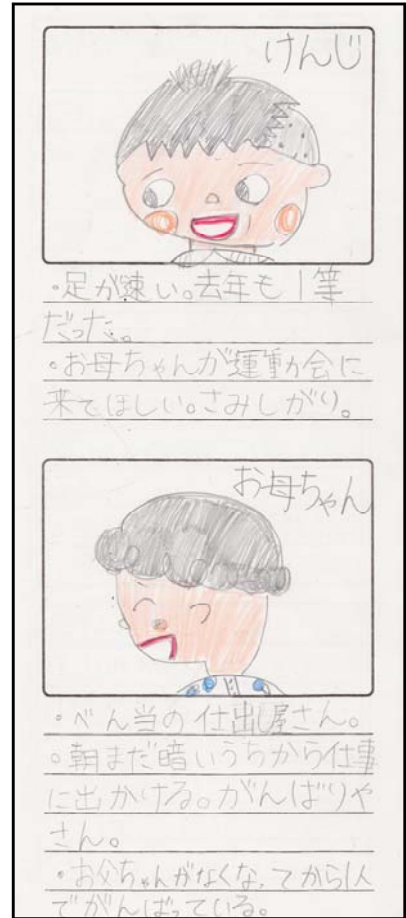 けんじ
・足が速い。去年も1等
だった。
・お母ちゃんが運動会に
来てほしい。さみしがり。
お母ちゃん
・べん当の仕出し屋さん。
・朝まだ暗いうちから仕事
に出かける。がんばりや
さん。
・お父ちゃんがなくなってから1人
でがんばっている。